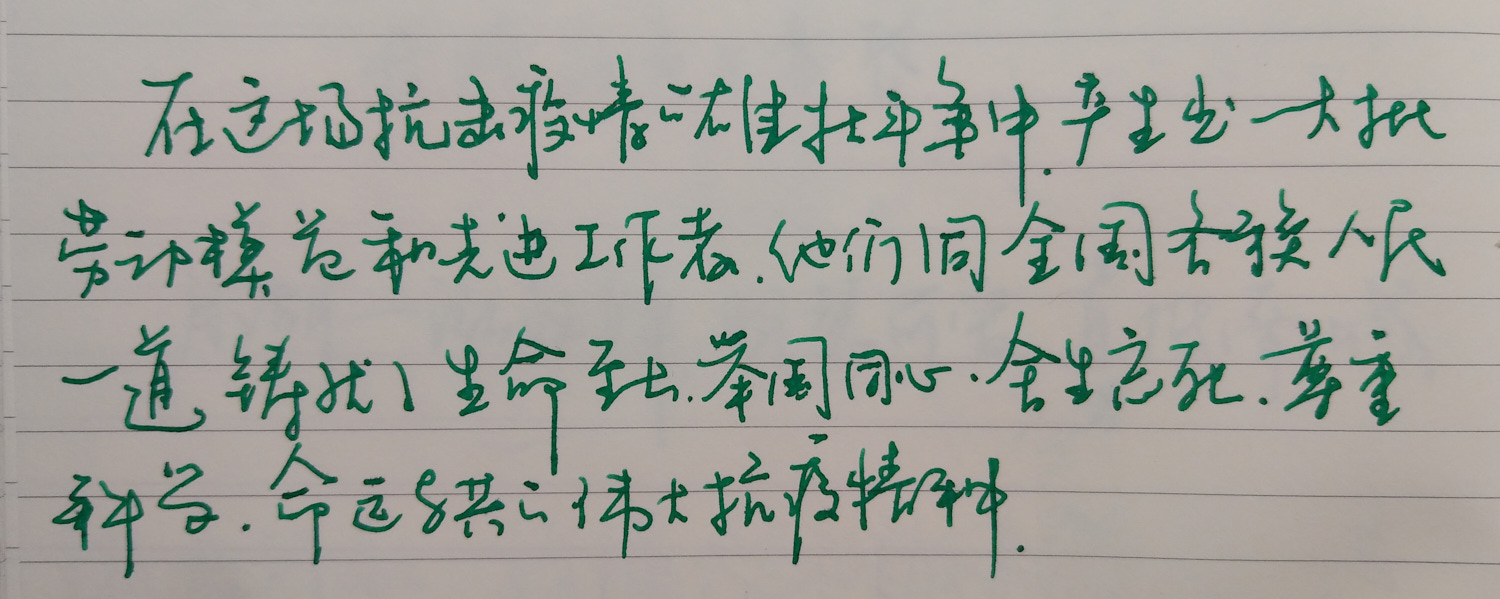 在这场抗击疫情的雄壮斗争中.产生出一大批
劳动模范和先进工作者.他们同全国各族人民
一道铸就了生命至上.举国同心.舍生忘死.尊重
科学.命运与共的伟大抗疫精神.